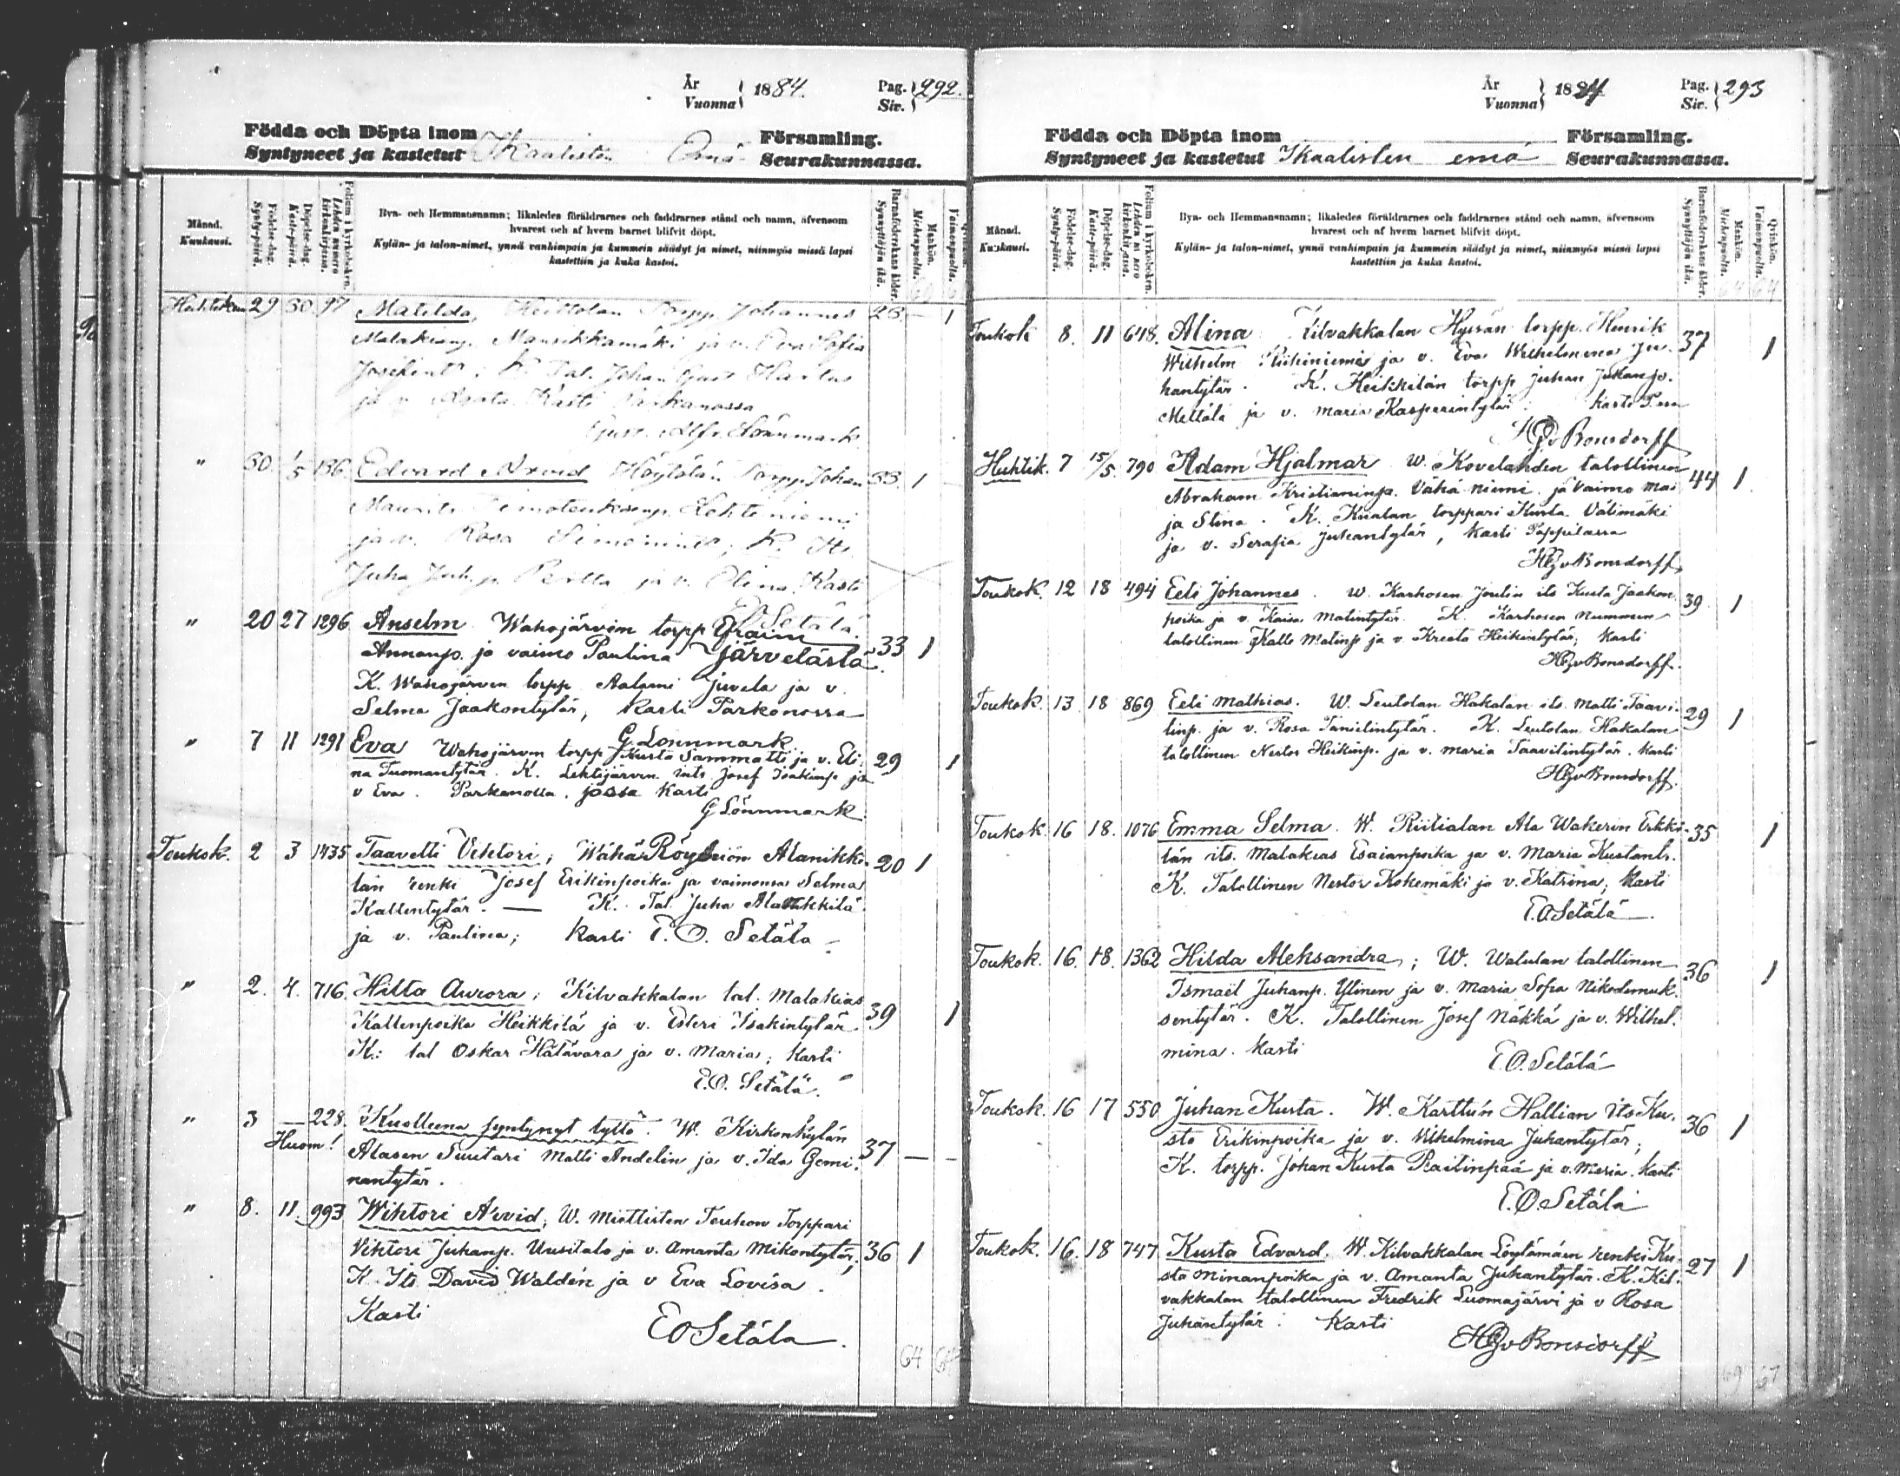 År Vuonna 1884. Pag. Siv. 292.
Födda och Döpta inom Församling.
Syntyneet ja kastetut Ikaalisten Emä Seurakunnassa.
Månad. Kuukausi.
Födelse-dag. Synty-päivä.
Döpelse-dag. Kaste-päivä.
Folium i kyrkoboken. Lehden numero kirkonkirjassa.
Bya- och Hemmansnamn; likaledes föräldrarnes och faddrarnes stånd och namn, äfvensom
hvarest och af hvem barnet blifvit döpt.
Kylän- ja talon-nimet, ynnä vanhimpain ja kummein säädyt ja nimet, niinmyös missä lapsi
kastettiin ja kuka kastoi.
Barnaföderskans ålder. Synnyttäjän ikä.
Mankön. Miehenpuolta.
Vaimonpuolta.
Huhtikuu 29 30 77 Matilda, torpp. Johannes 23 — 1
Mansikkamäki ja v. Eva Sofia
K. Tal. Johan
ja v. Agata. Kasti Parkanossa
Lönnmark
" 30. 1/5 136 Edvard Arvid Höytölän torpp. Johan 33 1 —
Maurits Lehtoniemi
ja v. Rosa K. Its.
Juha Juh. p. Perttu ja v. Kasti
E. O. Setälä.
" 20 27 1296 Anselm Wahojärven torpp. Efraim 33 1
Annanp. ja vaimo Paulina Järvelästä
K. Wahojärven torpp. Aalami Juvela ja v.
Selma Jaakontytär, Kasti Parkanossa
G. Lönnmark
" 7 11 1291 Eva Wahojärven torpp. Kusta Sammatti ja v. Eli- 29 1
na Tuomantytär. K. Lehtijärven its. Josef Isakinp. ja
v Eva. Parkanolla, jossa Kasti
G Lönnmark
Toukok. 2 3 1435 Taavetti Vihtori; Wähä Röyhiön Alanikki- 20 1
län renki Josef Erikinpoika ja vaimonsa Selma
Kallentytär. — K. Tal. Juha Alanikkilä
ja v. Paulina; Kasti E. O. Setälä
" 2. 4. 716. Hilta Aurora; Kilvakkalan tal. Malakias 39 1
Kallenpoika Heikkilä ja v. Esteri Isakintytär
K: tal Oskar Hätävara ja v. Maria; Kasti
E. O. Setälä.
" 3 — 228. Kuolleena syntynyt tyttö. W. Kirkonkylän 37 — —
Huom! Alasen Suutari Matti Andelin ja v. Ida Gemi-
nantytär.
" 8. 11. 993 Wihtori Arvid, W. Miettisten Touhon Torppari
Vihtori Juhanp. Uusitalo ja v. Amanta Mikontytär, 36 1
K. Its. David Waldén ja v Eva Lovisa.
Kasti
E O Setälä.
64
År Vuonna 1884 Pag. Siv. 293
Födda och Döpta inom Församling.
Syntyneet ja kastetut Ikaalisten emä Seurakunnassa.
Månad. Kuukausi.
Födelse-dag. Synty-päivä.
Döpelse-dag. Kaste-päivä.
Folium i kyrkoboken. Lehden numero kirkonkirjassa.
Bya- och Hemmansnamn; likaledes föräldrarnes och faddrarnes stånd och namn, äfvensom
hvarest och af hvem barnet blifvit döpt.
Kylän- ja talon-nimet, ynnä vanhimpain ja kummein säädyt ja nimet, niinmyös missä lapsi
kastettiin ja kuka kastoi.
Barnaföderskans ålder. Synnyttäjän ikä.
Mankön. Miehenpuolta.
Qvinkön. Vaimonpuolta.
64 64
Toukok 8. 11 648. Alina Kilvakkalan Hyssän torpp. Henrik 37 1
Wilhelm Riihiniemi ja v. Eva Wilhelmina Ju-
hantytär. K. Heikkilän torpp Juhan Juhanp.
Mettälä ja v. Maria Kasperintytär. Kasti
v Bonsdorff
Huhtik. 7 15/5. 790 Adam Hjalmar W. Kovelahden talollinen 44 1
Abraham Kristianinp. Vähäniemi ja vaimo Mai-
ja Stina. K. Kualan torppari Kusta Välimäki
ja v. Serafia Juhantytär, Kasti Pappilassa
v Bonsdorff
Toukok. 12 18 494 Eeli Johannes. W. Karhosen Joulin its Kusta Jaakon 39 1
poika ja v. Kaisa Matintytär. K. Karhosen Nummen
talollinen Kalle Matinp ja v. Kreeta Heikintytär; Kasti
v Bonsdorff.
Toukok. 13 18 869 Eeli Mathias. W. Leutolan Hakalan its. Matti Taavi- 29 1
tinp. ja v. Rosa Tanielintytär. K. Leutolan Hakalan
talollinen Nestor Heikinp. ja v. Maria Taavitintytär. Kasti
v Bonsdorff.
Toukok. 16 18. 1076 Emma Selma. W. Riitialan Ala Wakerin Erkki- 35 1
län its. Malakias Esaianpoika ja v. Maria Kustantr.
K. Talollinen Nestor Kokemäki ja v. Katrina; Kasti
E. O Setälä
Toukok. 16. 18. 1362 Hilda Aleksandra; W. Walulan talollinen 36 1
Ismael Juhanp. Ylinen ja v. Maria Sofia Nikodemuk-
sentytär. K. Talollinen Josef Näkkä ja v. Wilhel-
mina. Kasti
E. O. Setälä
Toukok. 16 17 550 Juhan Kusta. W. Karttu'n Hallian its Ku- 36 1
sta Erikinpoika ja v. Wilhelmina Juhantytär;
K. torpp. Johan Kusta Raitinpää ja v. Maria. Kasti
E. O Setälä
Toukok. 16. 18 747 Kusta Edvard. W. Kilvakkalan Löytämäen renki Ku- 27 1
sta Miinanpoika ja v. Amanta Juhantytär. K. Kil-
vakkalan talollinen Fredrik Luomajärvi ja v Rosa
Juhantytär. Kasti
v Bonsdorff
69 67